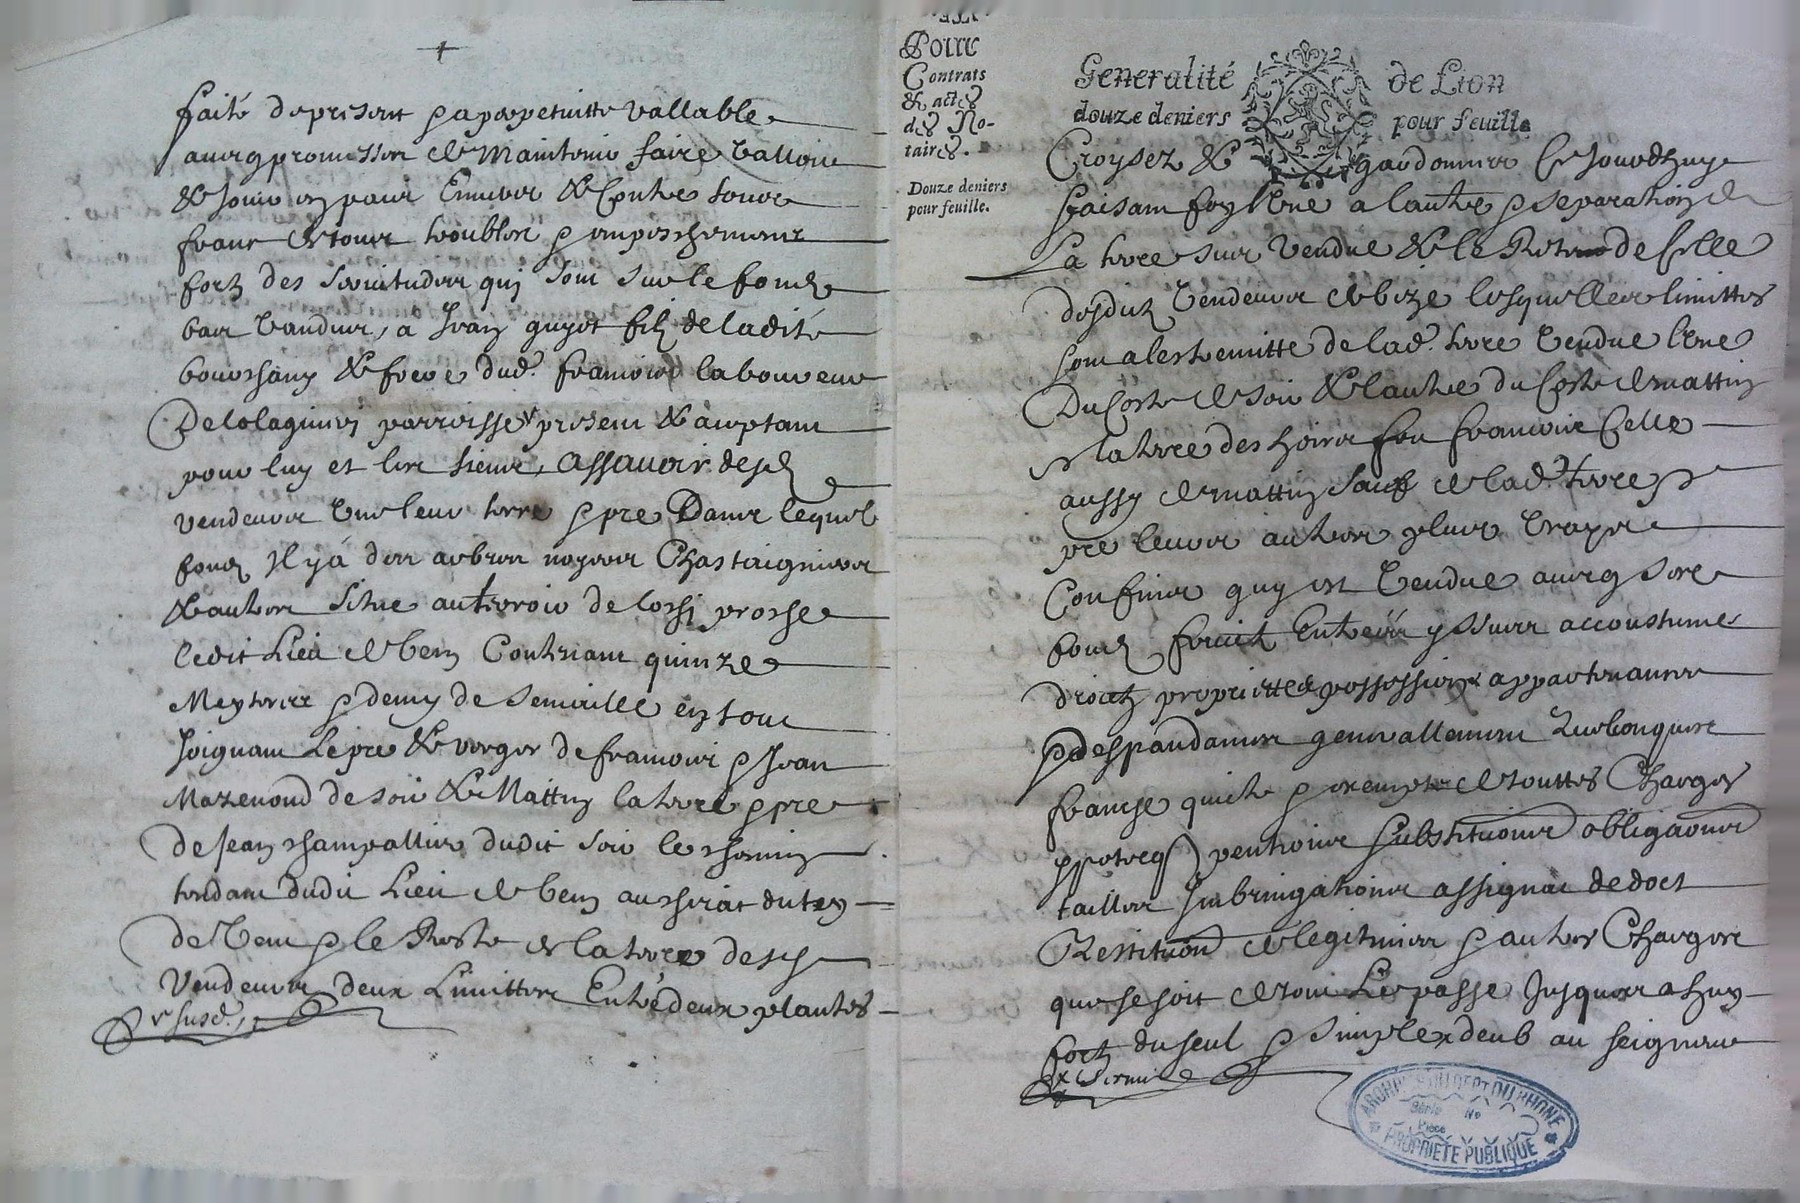 faite de present & a perpetuitte vallable
avecq promesse de Maintenir faire valloir
& Jouir en paix Envers & Contre tous
francs de tous troubles & empeschements
fors des servitudes qui sont sur le fonds
bas vandus, a Jean guyot fils de ladite
boussany & frere dud. francois laboureur
De parroisse present & acceptant
pour luy et les siens, assavoir desd
vendeurs Une leur terre & pre Dans lequel
fonds Il y a des arbres noyers Chastaigniers
& autres Situe au terroir de prosche
ledit Lieu de bern Contenant quinze
Meyteres & demy de semaille en tout
Joignant Le pre & verger de francois & Jean
Mazenoud de soir & Mattin la terre & pre
de Jean champallier dudit soir le chemin
tendant dudit Lieu de bern
de vent & le Reste de la terre desd
Vendeurs deux Limittes Entre deux plantes
v susd.
Pour
Contrats
& actes
des No-
taires.
Douze deniers
pour feuille.
Generalité de Lion
douze deniers pour feuille
Croysez & gardonnes Ce Jourdhuy
faisant foy lune a lautre & separation de
La terre sus vendue & le Reste de Celle
desdits vendeurs de bize lesquelles limittes
sont a lextremitte de lad. terre vendue lune
Du Coste de soir & lautre du Coste de mattin
la terre des hoirs feu francois Celle
aussy de mattin sauf de lad. terre &
pre leurs autres plus vrays
Confins quy est vendue avecq ses
fonds fruits Entrees yssues accoustumes
droits proprietted possessions appartenances
& despandances generallement quelconques
franche quitte & exempte de touttes Charges
ypotecq) pentions substitutions obligaons
tailles Imbringations assignat de dot
Restitution de legitimes & autres Charges
que se soit de tout Le passe Jusques a huy
fors du seul & simple deub au seigneur
ARCHIVES DU DEPT DU RHONE
Série No
Pièce
PROPRIETE PUBLIQUE